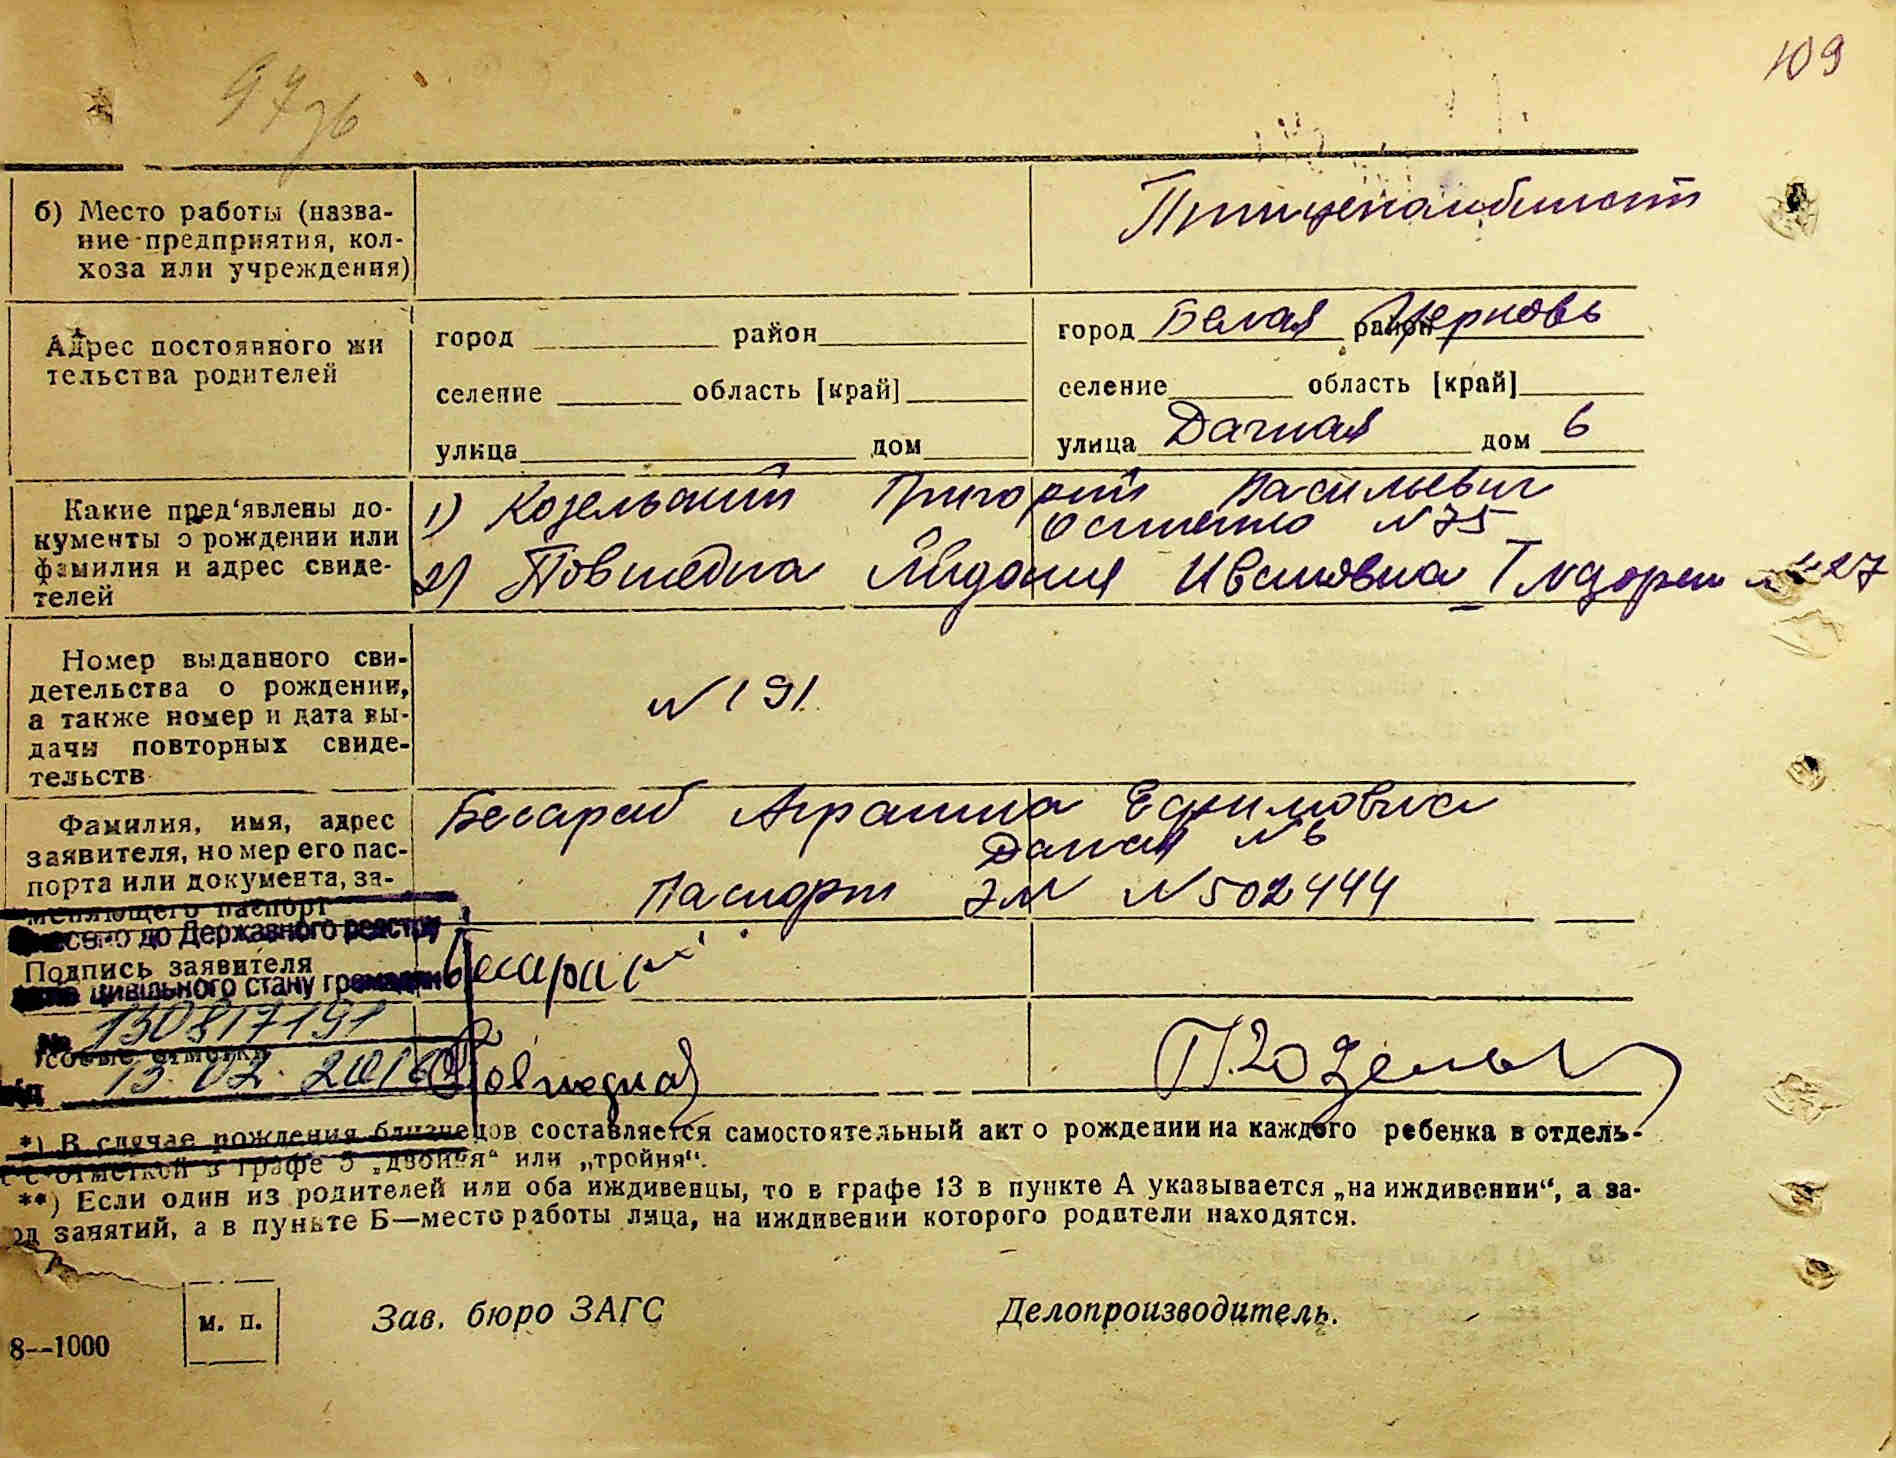 109
б) Место работы (назва-
ние предприятия, кол-
хоза или учреждения)
Птицекомбинат
Адрес постоянного жи
тельства родителей
город район
селение область [край]
улица дом
город Белая район Церковь
селение область [край]
улица Дачная дом 6
Какие пред‘явлены до-
кументы о рождении или
фамилия и адрес свиде-
телей
1) Козельский Григорий Васильевич
N 75
2) Ивановна 27
Номер выданного сви-
детельства о рождении,
а также номер и дата вы-
дачи повторных свиде-
тельств
N 191.
Фамилия, имя, адрес
заявителя, номер его пас-
порта или документа, за-
меняющего паспорт
Бесараб Ефимовна
Дачная N 6
Паспорт N 502444
до Державного реєстру
Подпись заявителя
цивільного стану громадян
№ 130817191
Особые отметки
13.02.2016
*) В случае рождения близнецов составляется самостоятельный акт о рождении на каждого ребенка в отдель-
с отметкой в графе 5 „двойня“ или „тройня“.
**) Если один из родителей или оба иждивенцы, то в графе 13 в пункте А указывается „на иждивении“, а за-
од занятий, а в пункте Б—место работы лица, на иждивении которого родители находятся.
м. п.
Зав. бюро ЗАГС
Делопроизводитель.
8--1000